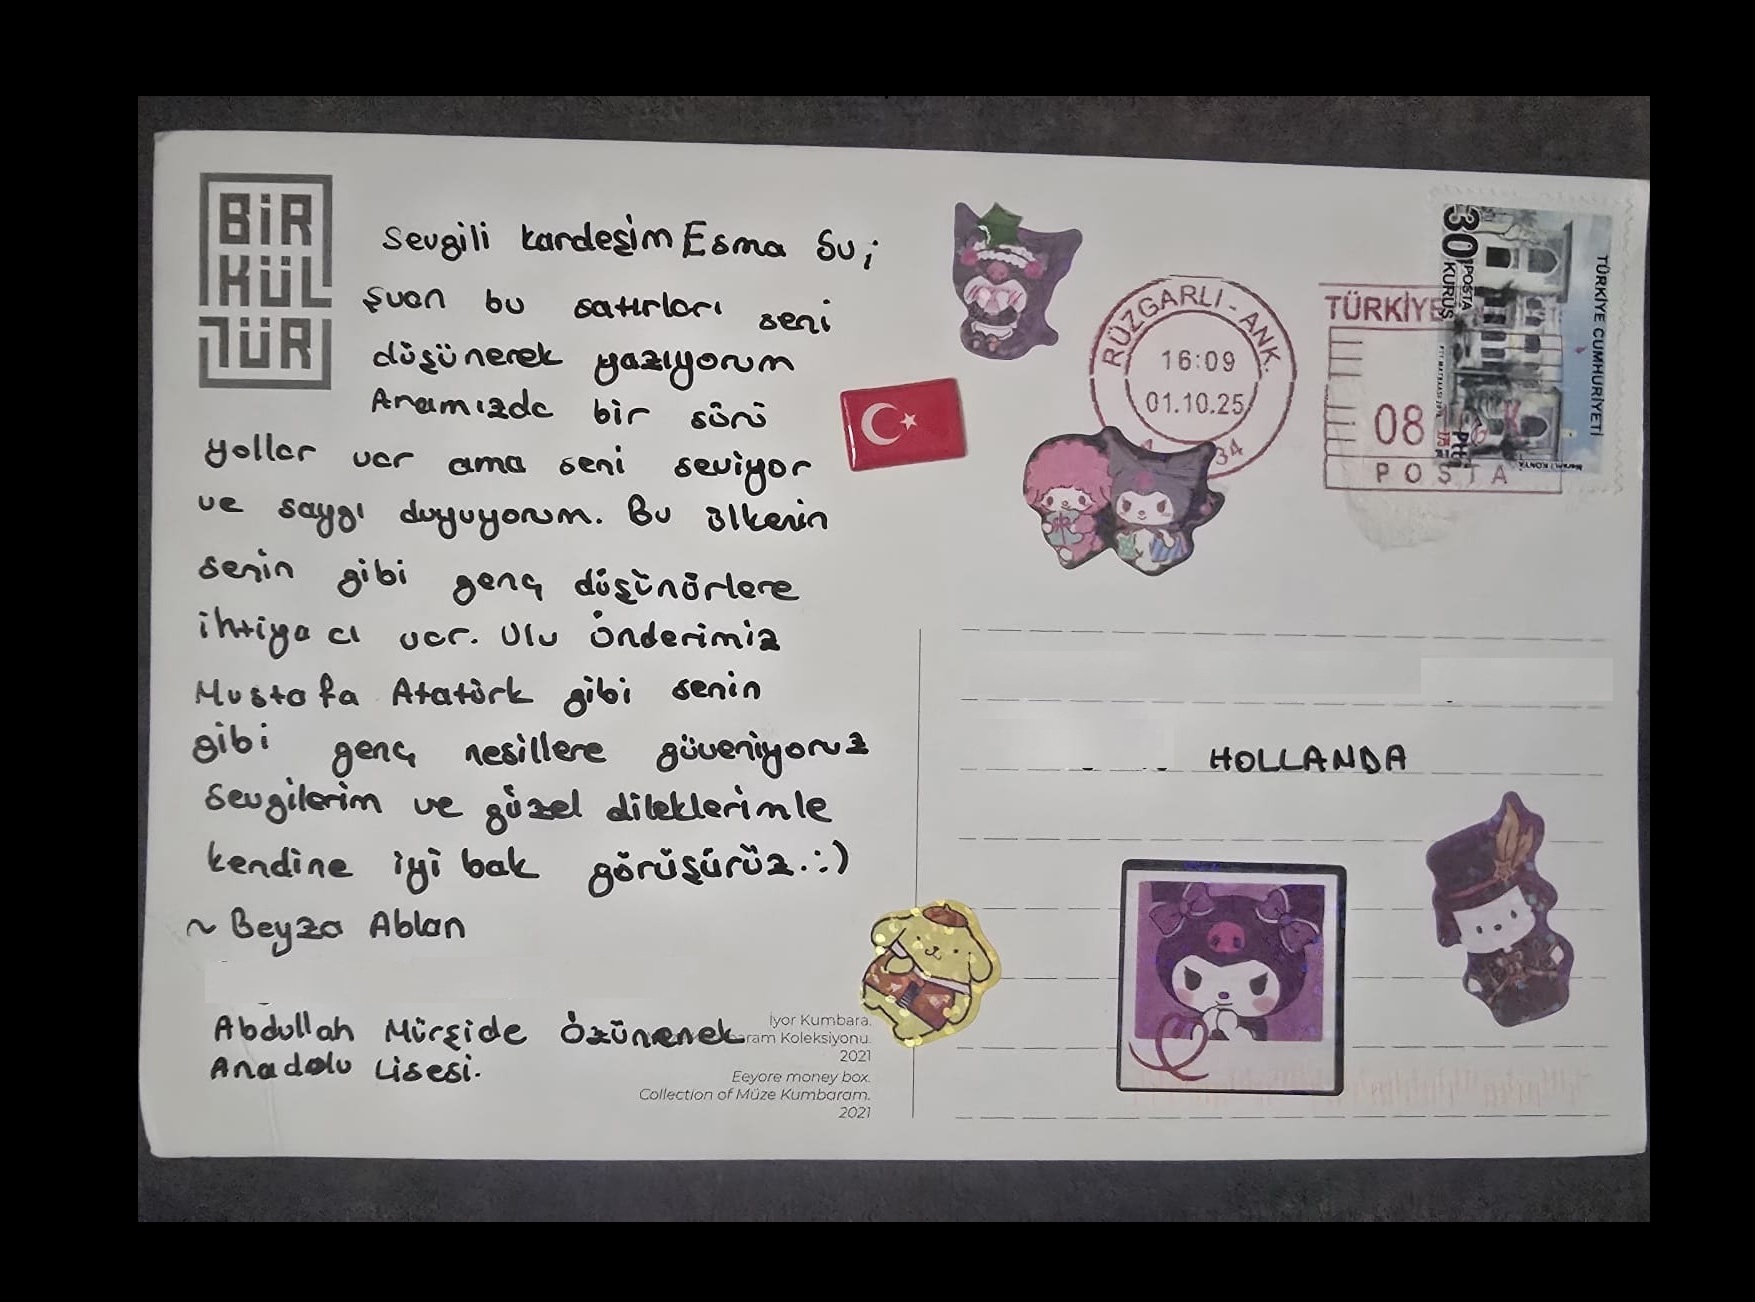 BİR
KÜL
TÜR
Sevgili kardeşim Esma Su;
şuan bu satırları seni
düşünerek yazıyorum
Aramızda bir sürü
yollar var ama seni seviyor
ve saygı duyuyorum. Bu ülkenin
senin gibi genç düşünürlere
ihtiyacı var. Ulu önderimiz
Mustafa Atatürk gibi senin
gibi genç nesillere güveniyoruz
Sevgilerim ve güzel dileklerimle
kendine iyi bak görüşürüz.:)
~ Beyza Ablan
Abdullah Mürşide Özünenek
Anadolu Lisesi.
İyor Kumbara.
aram Koleksiyonu.
2021
Eeyore money box.
Collection of Müze Kumbaram.
2021
RÜZGARLI - ANK.
16:09
01.10.25
34
TÜRKİYE
08
POSTA
30 POSTA
KURUŞ
TÜRKİYE CUMHURİYETİ
Ptt
Meram / KONYA
HOLLANDA